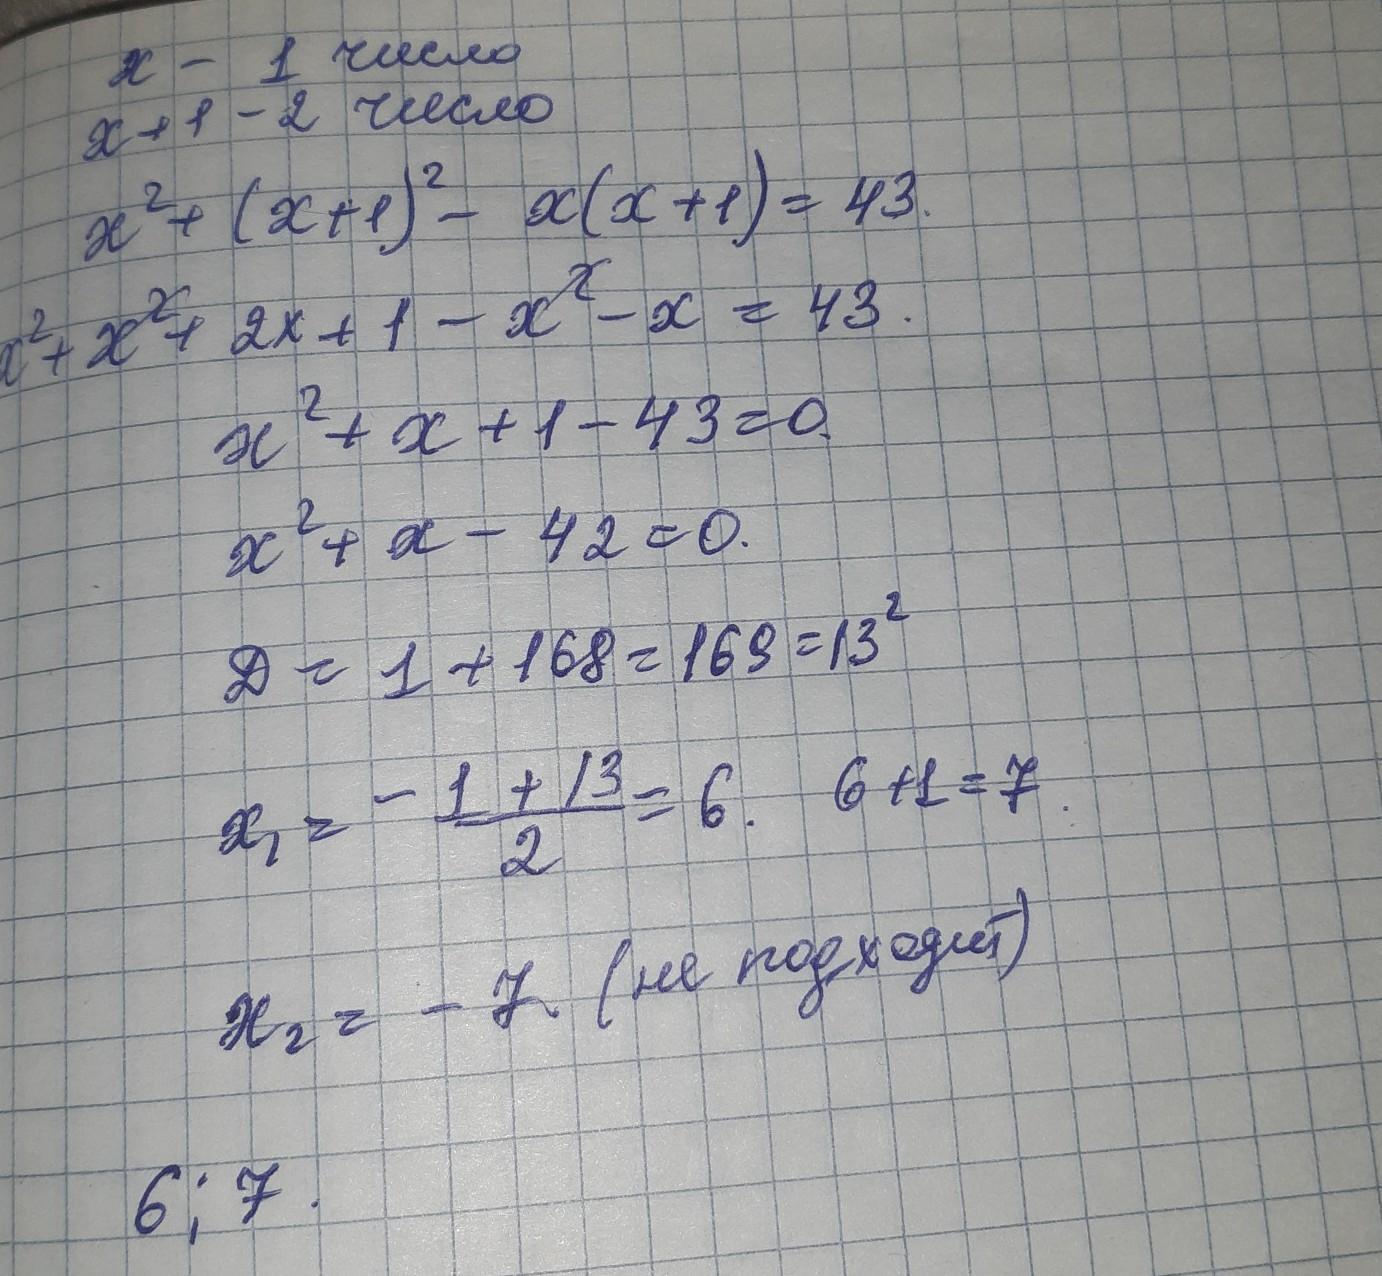 x - 1 число
x+1 - 2 число
x² + (x+1)² - x(x+1) = 43.
x² + x² + 2x + 1 - x² - x = 43.
x² + x + 1 - 43 = 0.
x² + x - 42 = 0.
Д = 1 + 168 = 169 = 13²
x₁ = (-1 + 13)/2 = 6. 6+1 = 7.
x₂ = -7. (не подходит)
6; 7.